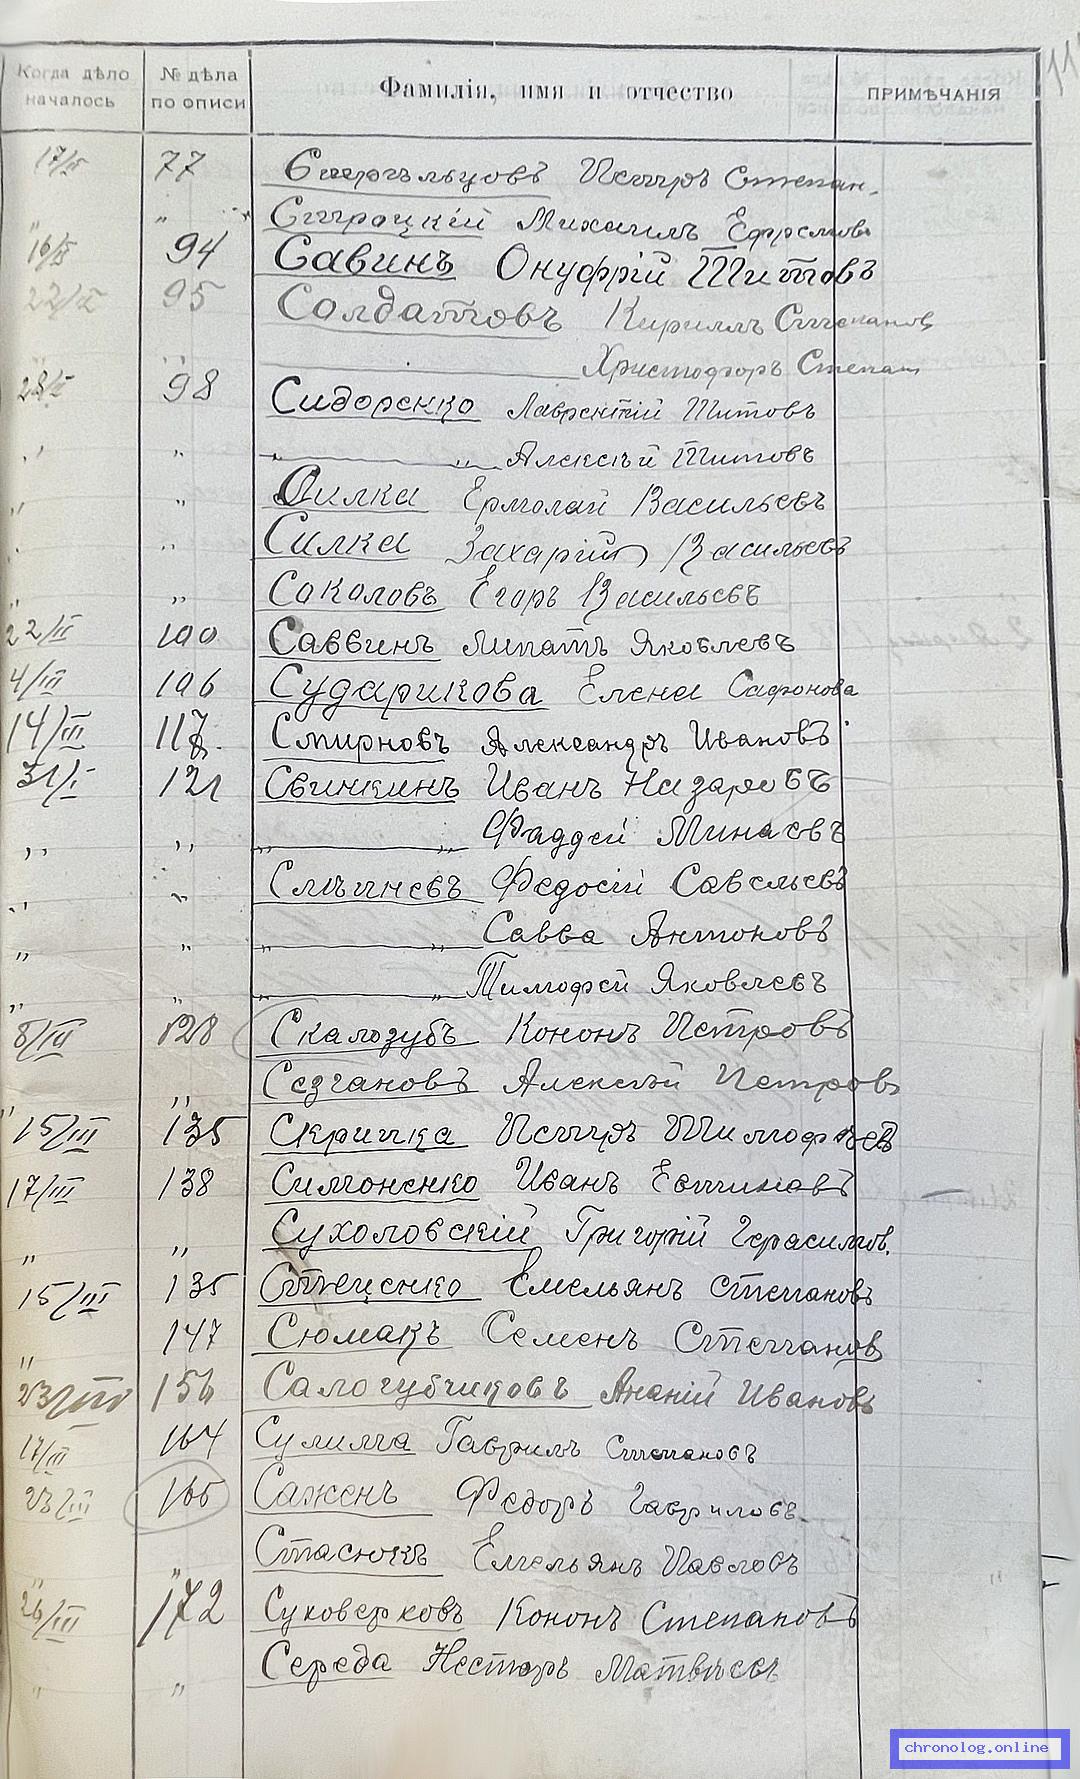 Когда дѣло началось № дѣла по описи Фамилія, имя и отчество ПРИМѢЧАНІЯ
17/II 77 Старѣльцовъ Петръ Степан.
„ „ Сырацкій Михаилъ Ефремовъ
16/II 94 Савинъ Онуфрій Титовъ
22/II 95 Солдатовъ Кириллъ Степановъ
„ „ Христофоръ Степан
28/II 98 Сидоренко Лаврентій Титовъ
„ „ „ „ Алексѣй Титовъ
„ „ Силка Ермолай Васильевъ
„ „ Силка Захарій Васильевъ
„ „ Соколовъ Егоръ Васильевъ
22/II 100 Саввинъ Липатъ Яковлевъ
4/III 106 Сударикова Елена Сафонова
14/III 117 Смирновъ Александръ Ивановъ
31/I 121 Свинкинъ Иванъ Назаровъ
„ „ „ „ Фаддей Минаевъ
„ „ Федосій Савельевъ
„ „ „ „ Савва Антоновъ
„ „ „ „ Тимофей Яковлевъ
8/III 128 Скалозубъ Кононъ Петровъ
„ „ Сезгановъ Алексѣй Петровъ
15/III 135 Скрипка Петръ Тимофѣевъ
17/III 138 Симоненко Иванъ
„ „ Сухоловскій Григорій Герасимов.
15/III 135 Стеценко Емельянъ Степановъ
„ 147 Сюмакъ Семенъ Степановъ
23/III 156 Салогубчиковъ Ананій Ивановъ
17/III 164 Сулима Гаврилъ Степановъ
23/III 165 Саженъ Федоръ Гавриловъ
„ „ Стасюкъ Емельянъ Павловъ
26/III 172 Суковерковъ Кононъ Степановъ
„ „ Середа Несторъ Матвѣевъ
chronolog.online